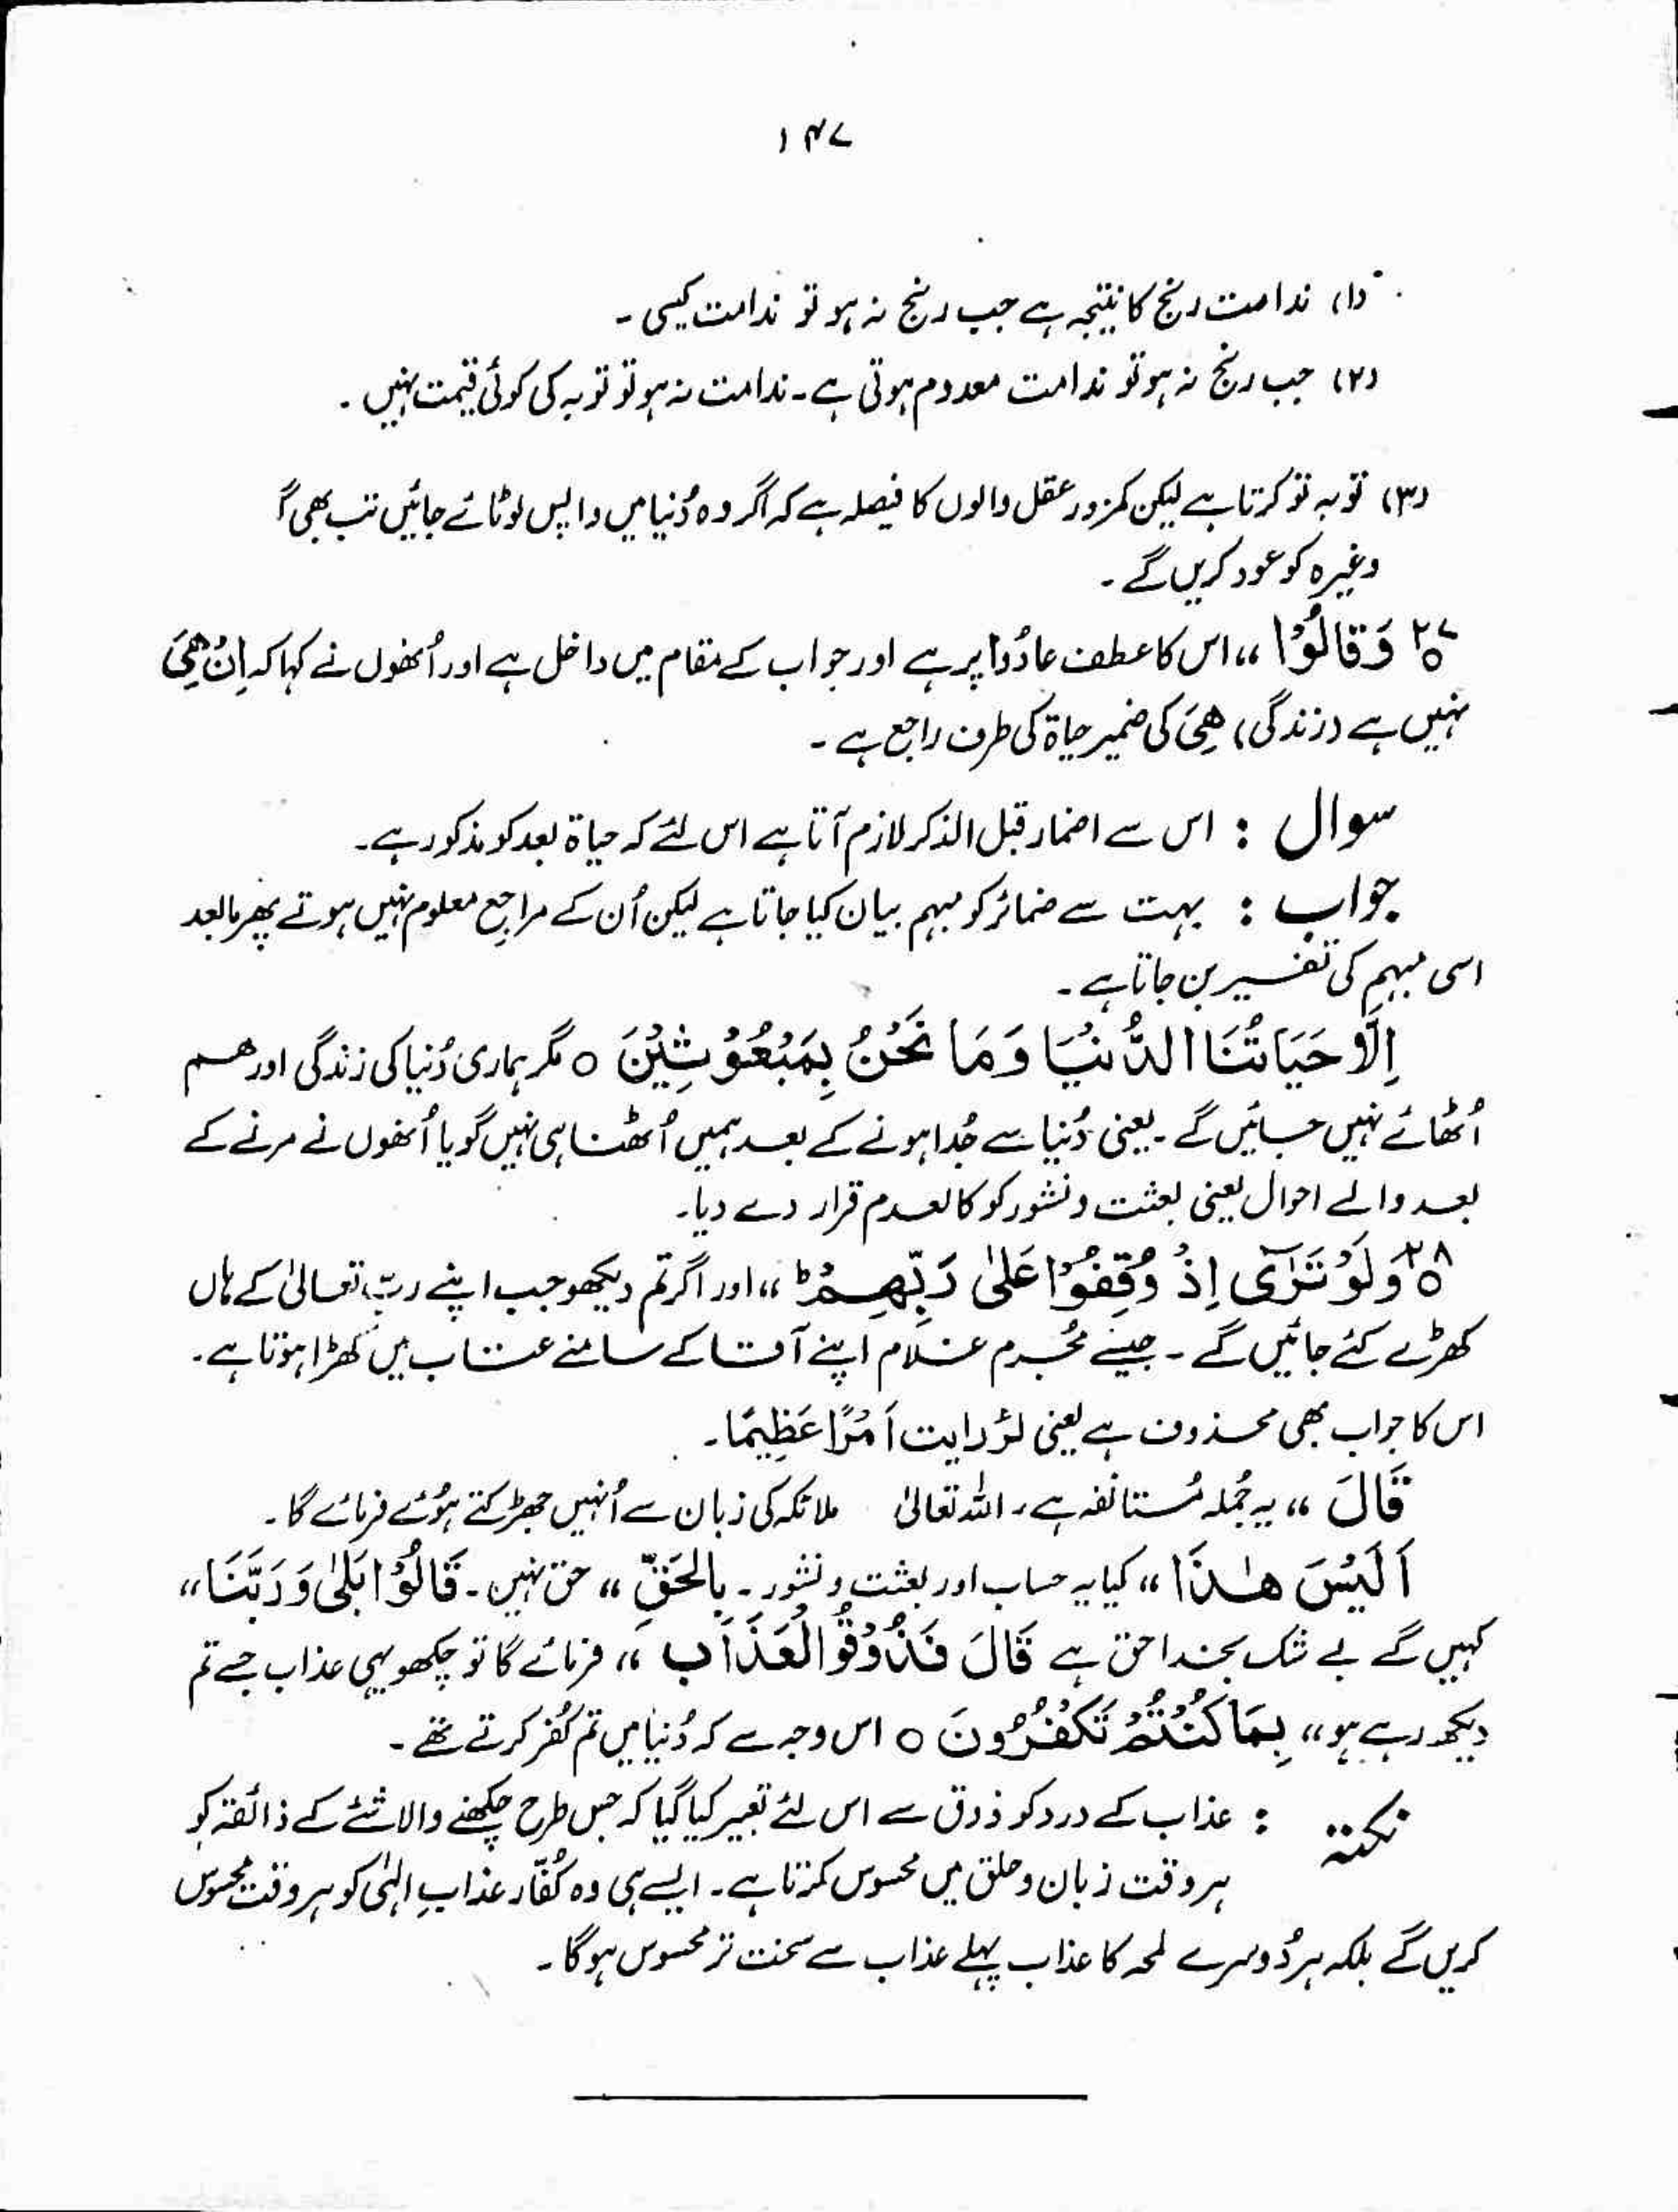 ۱۴۷
(۱) ندامت رنج کا نتیجہ ہے جب رنج نہ ہو تو ندامت کیسی ۔
(۲) جب رنج نہ ہو تو ندامت معدوم ہوتی ہے۔ ندامت نہ ہو تو توبہ کی کوئی قیمت نہیں ۔
(۳) توبہ تو کرتا ہے لیکن کمزور عقل والوں کا فیصلہ ہے کہ اگر وہ دُنیا میں واپس لوٹائے جائیں تب بھی
وغیرہ کو عود کریں گے ۔
۲۷ وَقَالُوْا ،، اس کا عطف عادُوا پر ہے اور جواب کے مقام میں داخل ہے اور اُنھوں نے کہا کہ اِنْ هِیَ
نہیں ہے (زندگی) هِیَ کی ضمیر حیاۃ کی طرف راجع ہے ۔
سوال : اس سے اضمار قبل الذکر لازم آتا ہے اس لئے کہ حیاۃ بعد کو مذکور ہے۔
جواب : بہت سے ضمائر کو مبہم بیان کیا جاتا ہے لیکن اُن کے مراجع معلوم نہیں ہوتے پھر مابعد
اسی مبہم کی تفسیر بن جاتا ہے ۔
اِلَّا حَيَاتُنَا الدُّنْيَا وَمَا نَحْنُ بِمَبْعُوْثِيْنَ ○ مگر ہماری دُنیا کی زندگی اور ہم
اُٹھائے نہیں جائیں گے ۔ یعنی دُنیا سے جُدا ہونے کے بعد ہمیں اُٹھنا ہی نہیں گویا اُنھوں نے مرنے کے
بعد والے احوال یعنی بعثت و نشور کو کالعدم قرار دے دیا۔
۲۸ وَلَوْ تَرٰٓی اِذْ وُقِفُوْا عَلٰی رَبِّهِمْ ؕ ،، اور اگر تم دیکھو جب اپنے ربّ تعالیٰ کے ہاں
کھڑے کئے جائیں گے ۔ جیسے مُجرم غلام اپنے آقا کے سامنے عتاب میں کھڑا ہوتا ہے ۔
اس کا جواب بھی محذوف ہے یعنی لرؤرایت اَمْرًا عَظِیْمًا ۔
قَالَ ،، یہ جُملہ مُستانفہ ہے، اللہ تعالیٰ ملائکہ کی زبان سے اُنہیں جھڑکتے ہوُئے فرمائے گا ۔
اَلَیْسَ هٰذَا ،، کیا یہ حساب اور بعثت و نشور ۔ بِالْحَقِّ ،، حق نہیں ۔ قَالُوْا بَلٰی وَرَبِّنَا ،،
کہیں گے بے شک بخدا حق ہے قَالَ فَذُوْقُوا الْعَذَابَ ،، فرمائے گا تو چکھو یہی عذاب جسے تم
دیکھ رہے ہو ،، بِمَا كُنْتُمْ تَكْفُرُونَ ○ اس وجہ سے کہ دُنیا میں تم کُفر کرتے تھے ۔
نکتہ : عذاب کے درد کو ذوق سے اس لئے تعبیر کیا گیا کہ جس طرح چکھنے والا شئے کے ذائقہ کو
ہر وقت زبان و حلق میں محسوس کرتا ہے ۔ ایسے ہی وہ کُفّار عذابِ الٰہی کو ہر وقت محسوس
کریں گے بلکہ ہر دُوسرے لمحہ کا عذاب پہلے عذاب سے سخت تر محسوس ہوگا ۔